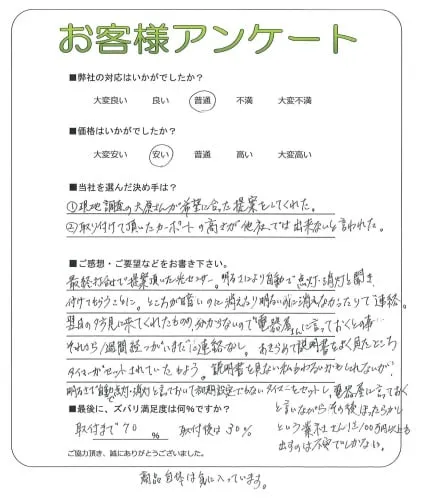 お客様アンケート
■弊社の対応はいかがでしたか？
大変良い 良い 普通 不満 大変不満
■価格はいかがでしたか？
大変安い 安い 普通 高い 大変高い
■当社を選んだ決め手は？
①現地調査の大原さんが希望に合った提案をしてくれた。
②取り付けて頂いたカーポートの高さが他社では出来ないと言われた。
■ご感想・ご要望などをお書き下さい。
最終打合せで提案頂いた光センサー。明るさにより自動で点灯・消灯と聞き、
付けてもらうことに。ところが暗いのに消えたり明るいのに消えなかったりで連絡。
翌日の夕方見に来てくれたものの、分からないので"電器屋さんに言っておくとの事…
それから1週間経つがいまだに連絡なし。あきらめて説明書をよく見たところ
タイマーがセットされていたもよう。説明書を見ない私もわるいかもしれないが、
明るさで自動点灯・消灯と言っておいて初期設定でもないタイマーをセットし、電器屋に言っておく
と言いながらその後ほったらかし
という業社さんに100万円以上も
出すのは不安でしかない。
■最後に、ズバリ満足度は何％ですか？
取付まで 70 ％ 取付後は 30％
ご協力頂き、誠にありがとうございました。
商品自体は気に入っています。